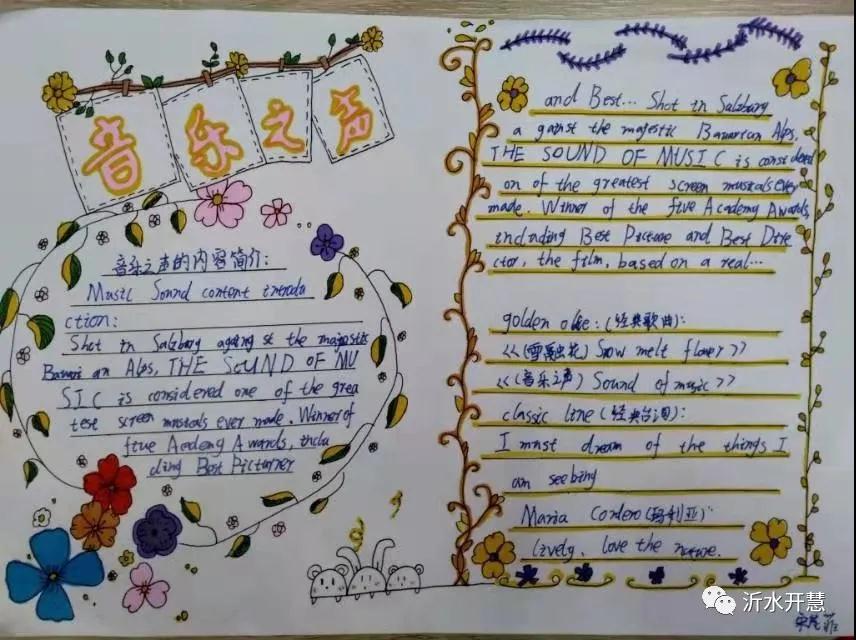 音乐之声
音乐之声的内容简介:
Music Sound content introdu
ction:
Shot in Salzburg against st the majestic
Bavari an Alps, THE SOUND OF MU
SIC is considered one of the grea
test screen musicals ever made. Winner of
five Academy Awards, inclu
ding Best Picturner
and Best... Shot in Salzburg
a gainst the majestic Bavarian Alps.
THE SOUND OF MUSIC is considered
on of the greatest screen musicals ever
made. Winner of the five Academy Awards,
including Best Picture and Best Dire
ctor, the film, based on a real...
golden olie:(经典歌曲):
<<(雪融花) Snow melt flower>>
<<(音乐之声) Sound of music>>
classic line(经典台词):
I must dream of the things I
am seebing
Maria Cordero(玛利亚)
lively, love the nature.
沂水开慧